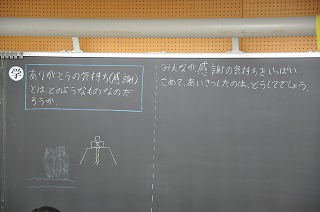 学
ありがとうの気持ち(感謝)
とは、どのようなものなのだ
ろうか。
みんなが感謝の気持ちをいっぱい
こめて、あいさつしたのは、どうしてでしょう。